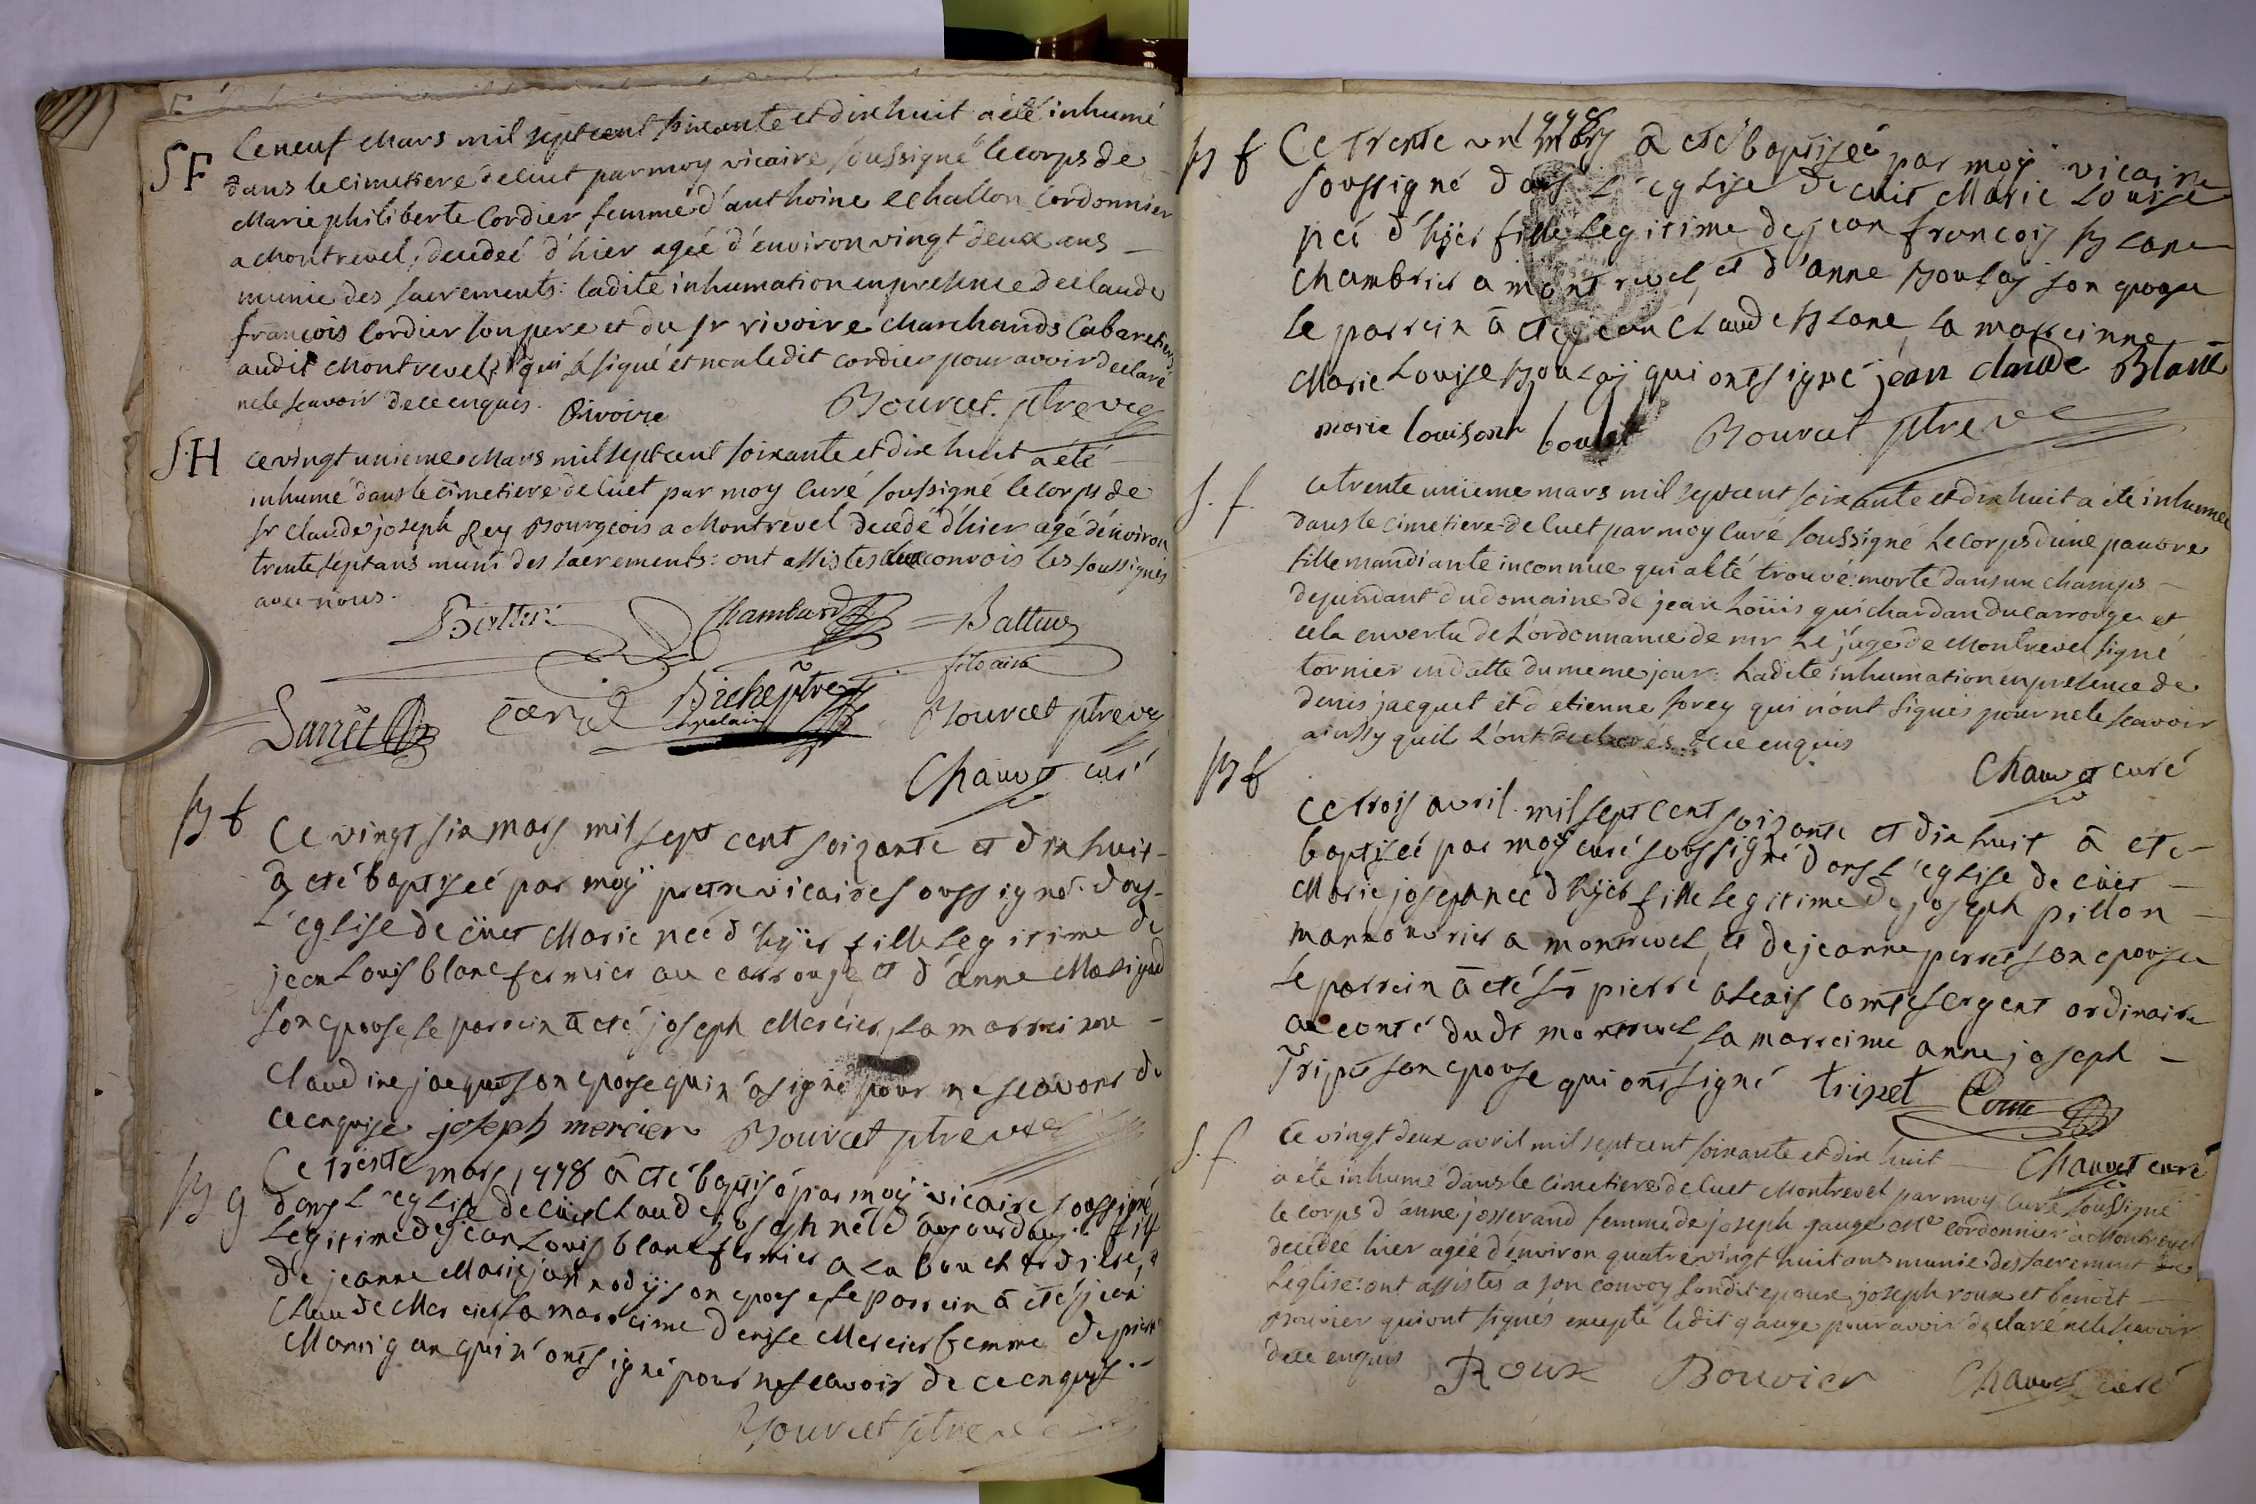 SF
Ce neuf Mars mil sept cent soixante et dix huit a été inhumé
dans le cimetiere de Cuet par moy vicaire soussigné le corps de
Marie philiberte Cordier femme d'anthoine echallon Cordonnier
a Montrevel, decedeé d'hier ageé d'environ vingt deux ans
munie des sacrements: ladite inhumation en presence de claude
françois Cordier son pere et du sr rivoire Marchands Cabaretiers
audit Montrevel, qui a signé et non ledit cordier pour avoir declaré
ne le scavoir de ce enquis. Rivoire Bourcet ptre vic
S.H
ce vingt unieme Mars mil sept cent soixante et dix huit a été
inhumé dans le cimetiere de Cuet par moy Curé soussigné le corps de
sr Claude joseph Rey Bourgeois a Montrevel decedé d'hier agé d'environ
trente sept ans muni des sacrements: ont assistes au convois les soussignés
avec nous.
Chambard
Bourcet ptre vic
Chauvet curé
B f
Ce vingt six mars mil sept cent soizante et dix huit
a eté baptiseé par moÿ pretre vicaire soussigné dans
L'eglise de cüet Marie neé d'hÿier fille Legitime de
jean Louis blanc fermier au carrouge et d'anne Masigand
son epouse, Le parrein a eté joseph Mercier, La marreinne
Claudine jaquet son epouse qui n'a signé pour ne scavoir de
ce enquise. joseph mercier Bourcet ptre vic
B g
Ce trente mars 1778 a eté baptisé par moÿ vicaire soussigné
dans L'eglise de cüet Claude joseph né d'aujourdhuy fils
Legitime de jean Louis blanc fermier a La
de jeanne Marie son epouse, Le parrein a eté jean
Claude Mercier, La marreinne denise Mercier femme de pierre
qui n'ont signé pour ne scavoir de ce enquis.
Bourcet ptre vic
B f
1778
Ce trente un mars a eté baptiseé par moÿ vicaire
soussigné dans L'eglise de cuit Marie Louise
neé d'hÿier fille Legitime de jean françois Blanc
Chambrier a montrevel, et d'anne Boulay son epouse
Le parrein a eté jean Claude Blanc, La marreinne
Marie Louise Boulaÿ qui ont signé jean claude Blanc
marie louison boulet Bourcet ptre v
S. f.
Ce trente unieme mars mil sept cent soixante et dix huit a été inhumée
dans le cimetiere de Cuet par moy Curé soussigné Le corps d'une pauvre
fille mandiante inconnue qui a été trouvé morte dans un champs
dependant du domaine de jean Loüis guichardan du carrouge et
cela en vertu de L'ordonnance de mr Le juge de Montrevel signé
tornier en datte du meme jour: Ladite inhumation en presence de
denis jacquet et d'etienne forey qui n'ont signés pour ne le scavoir
ainsy quils L'ont declarés de ce enquis
Chauvet curé
B f
Ce trois avril mil sept cent soizante et dix huit a eté
baptiseé par moÿ curé soussigné dans L'eglise de cüet
Marie joseph neé d'hÿier fille Legitime de joseph pillon
manouvrier a montrevel, et de jeanne perret son epouse
Le parrein a eté sr pierre alexis Comte sergent ordinaire
au comté dudt montrevel, La marreinne anne joseph
Tripet son epouse qui ont signé tripet Comte
Chauvet curé
S. f.
Ce vingt deux avril mil sept cent soixante et dix huit
a été inhumé dans le cimetiere de Cuet Montrevel par moy Curé soussigné
le corps d'anne josserand femme de joseph gauge mtre cordonnier a Montrevel
decedée hier ageé d'environ quatre vingt huit ans munie des sacrement de
L'eglise: ont assistés a son convoy sondit epoux, joseph roux et benoit
Bouvier qui ont signés excepté ledit gauge pour avoir declaré ne le scavoir
de ce enquis Roux Bouvier Chauvet curé